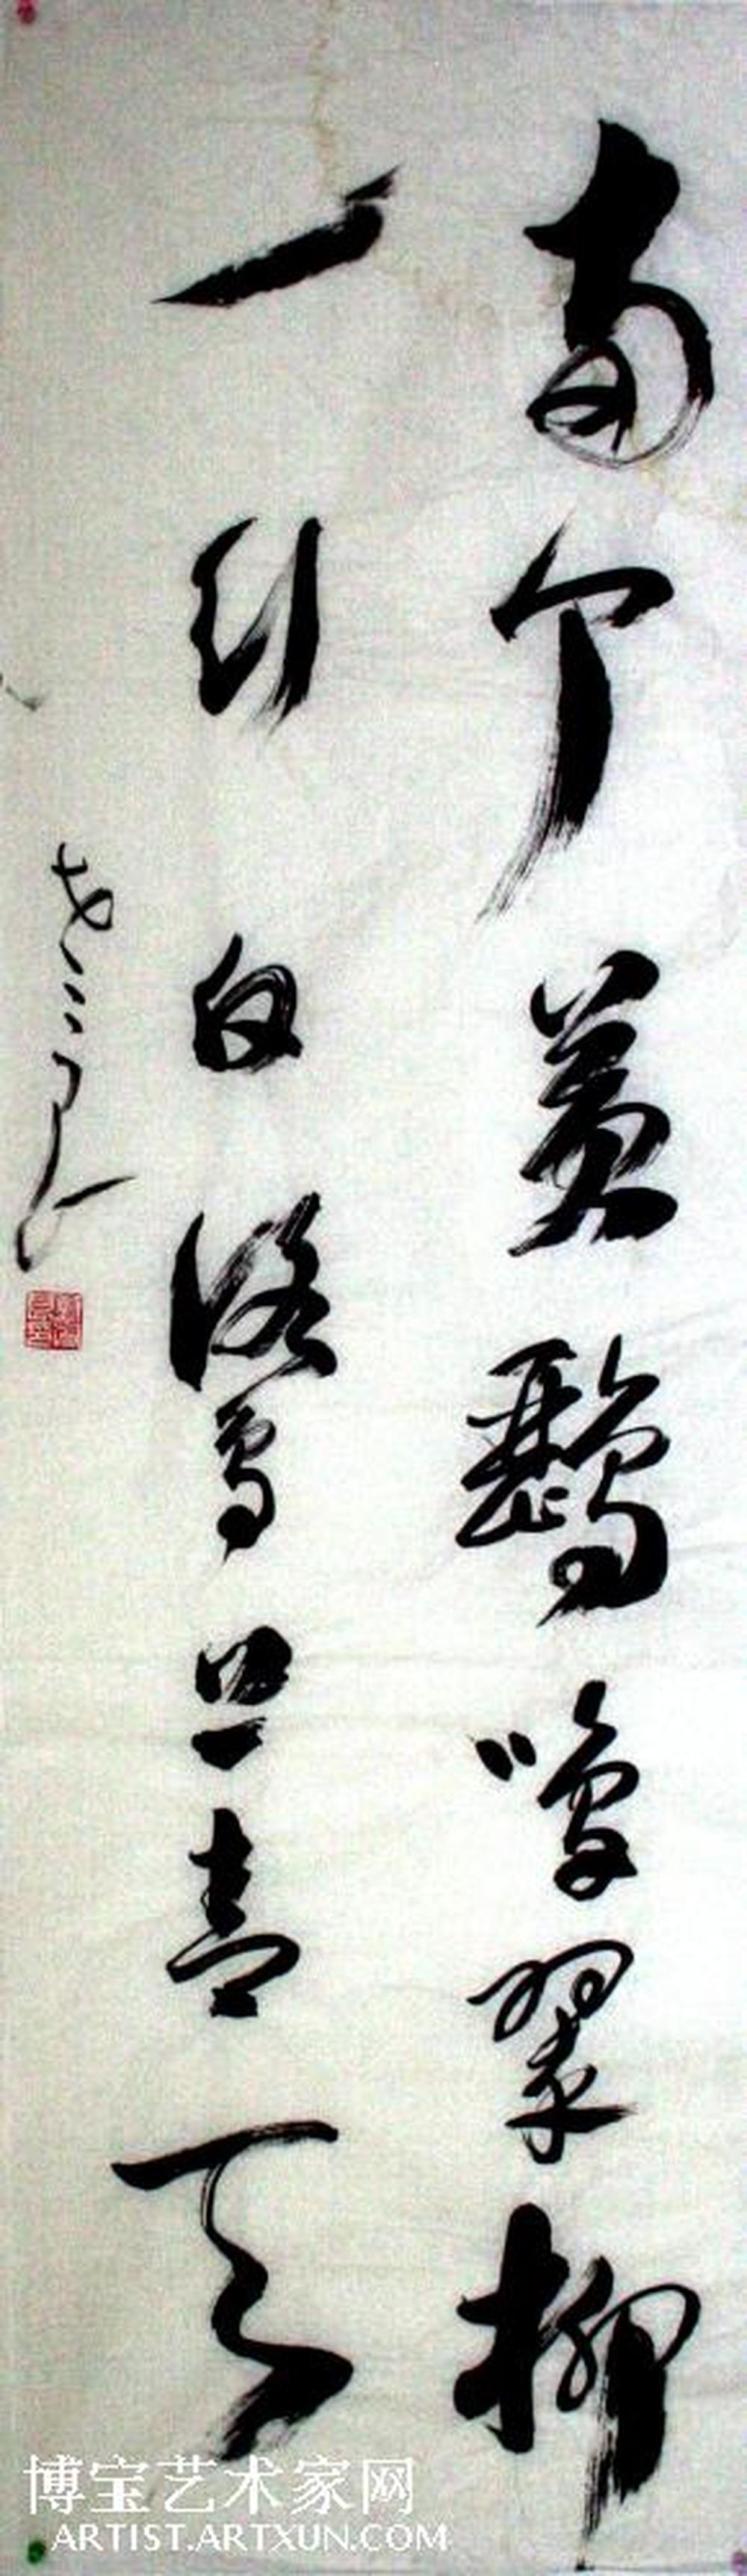 両个黃鸝鳴翠柳
一行白鷺上青天
博宝艺术家网
ARTIST.ARTXUN.COM